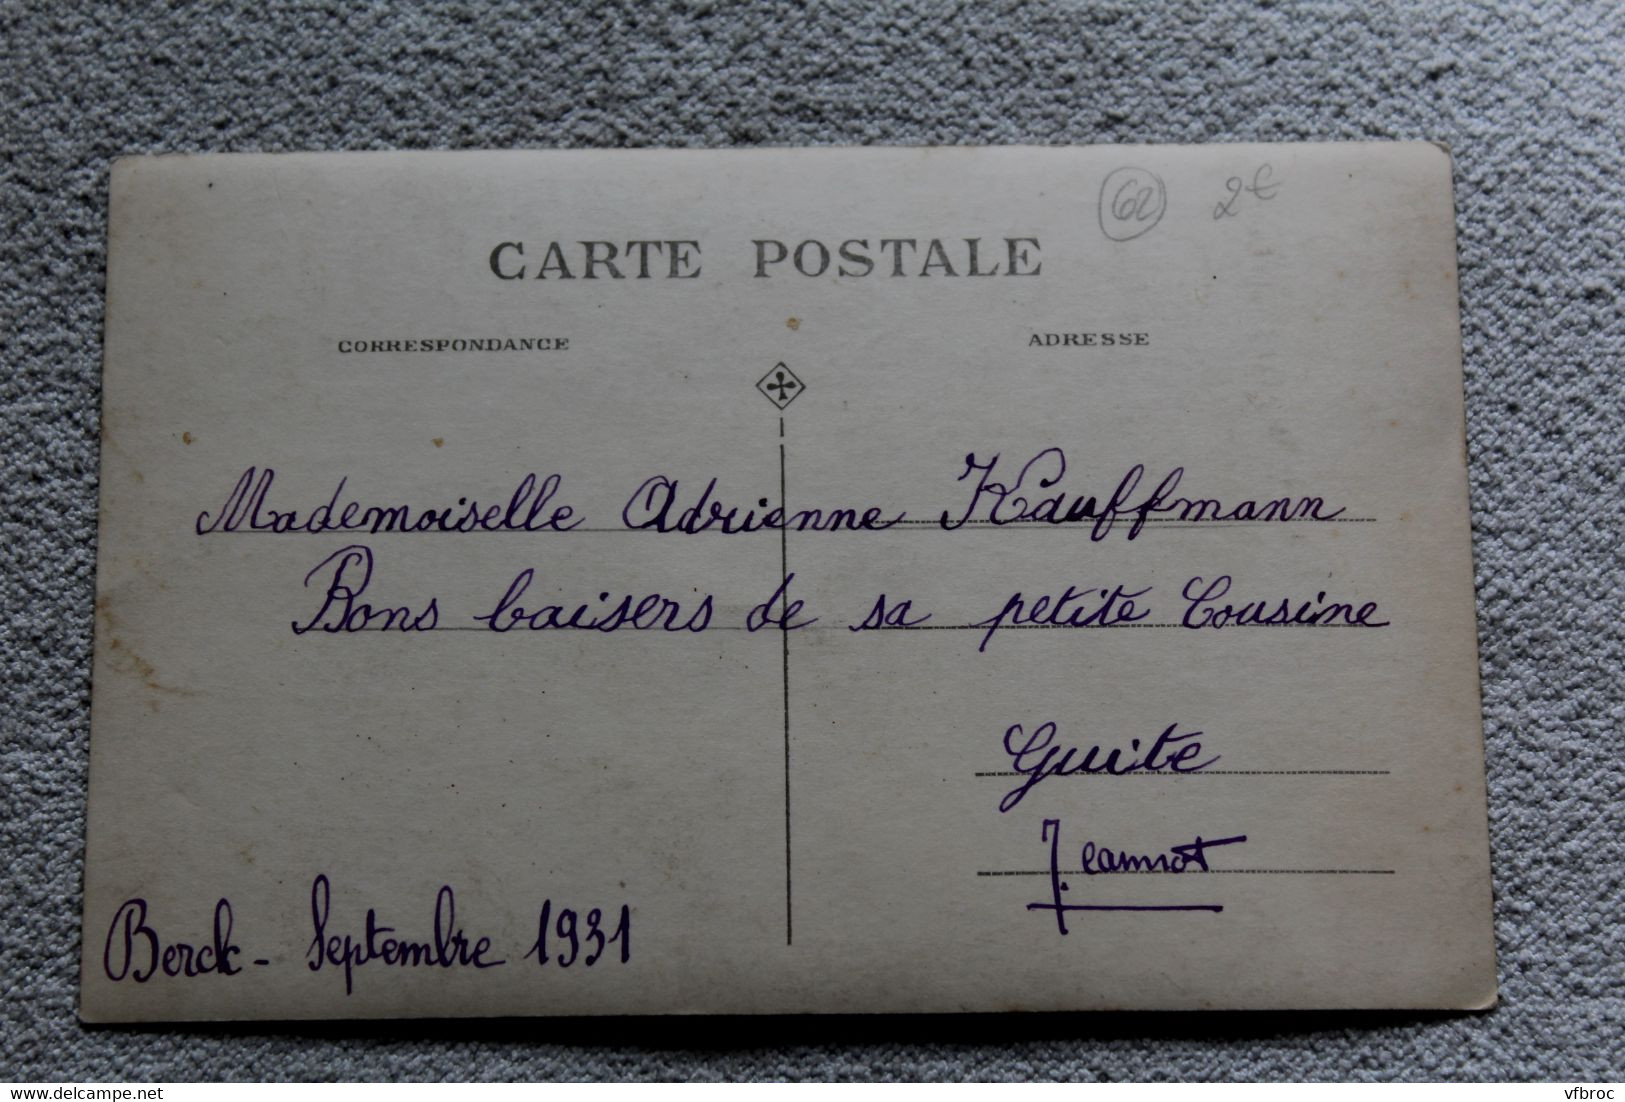 62 2€
CARTE POSTALE
CORRESPONDANCE
ADRESSE
Mademoiselle Adrienne Kauffmann
Bons baisers de sa petite Cousine
Guite
Jeannot
Berck - Septembre 1931
delcampe.net
vfbroc